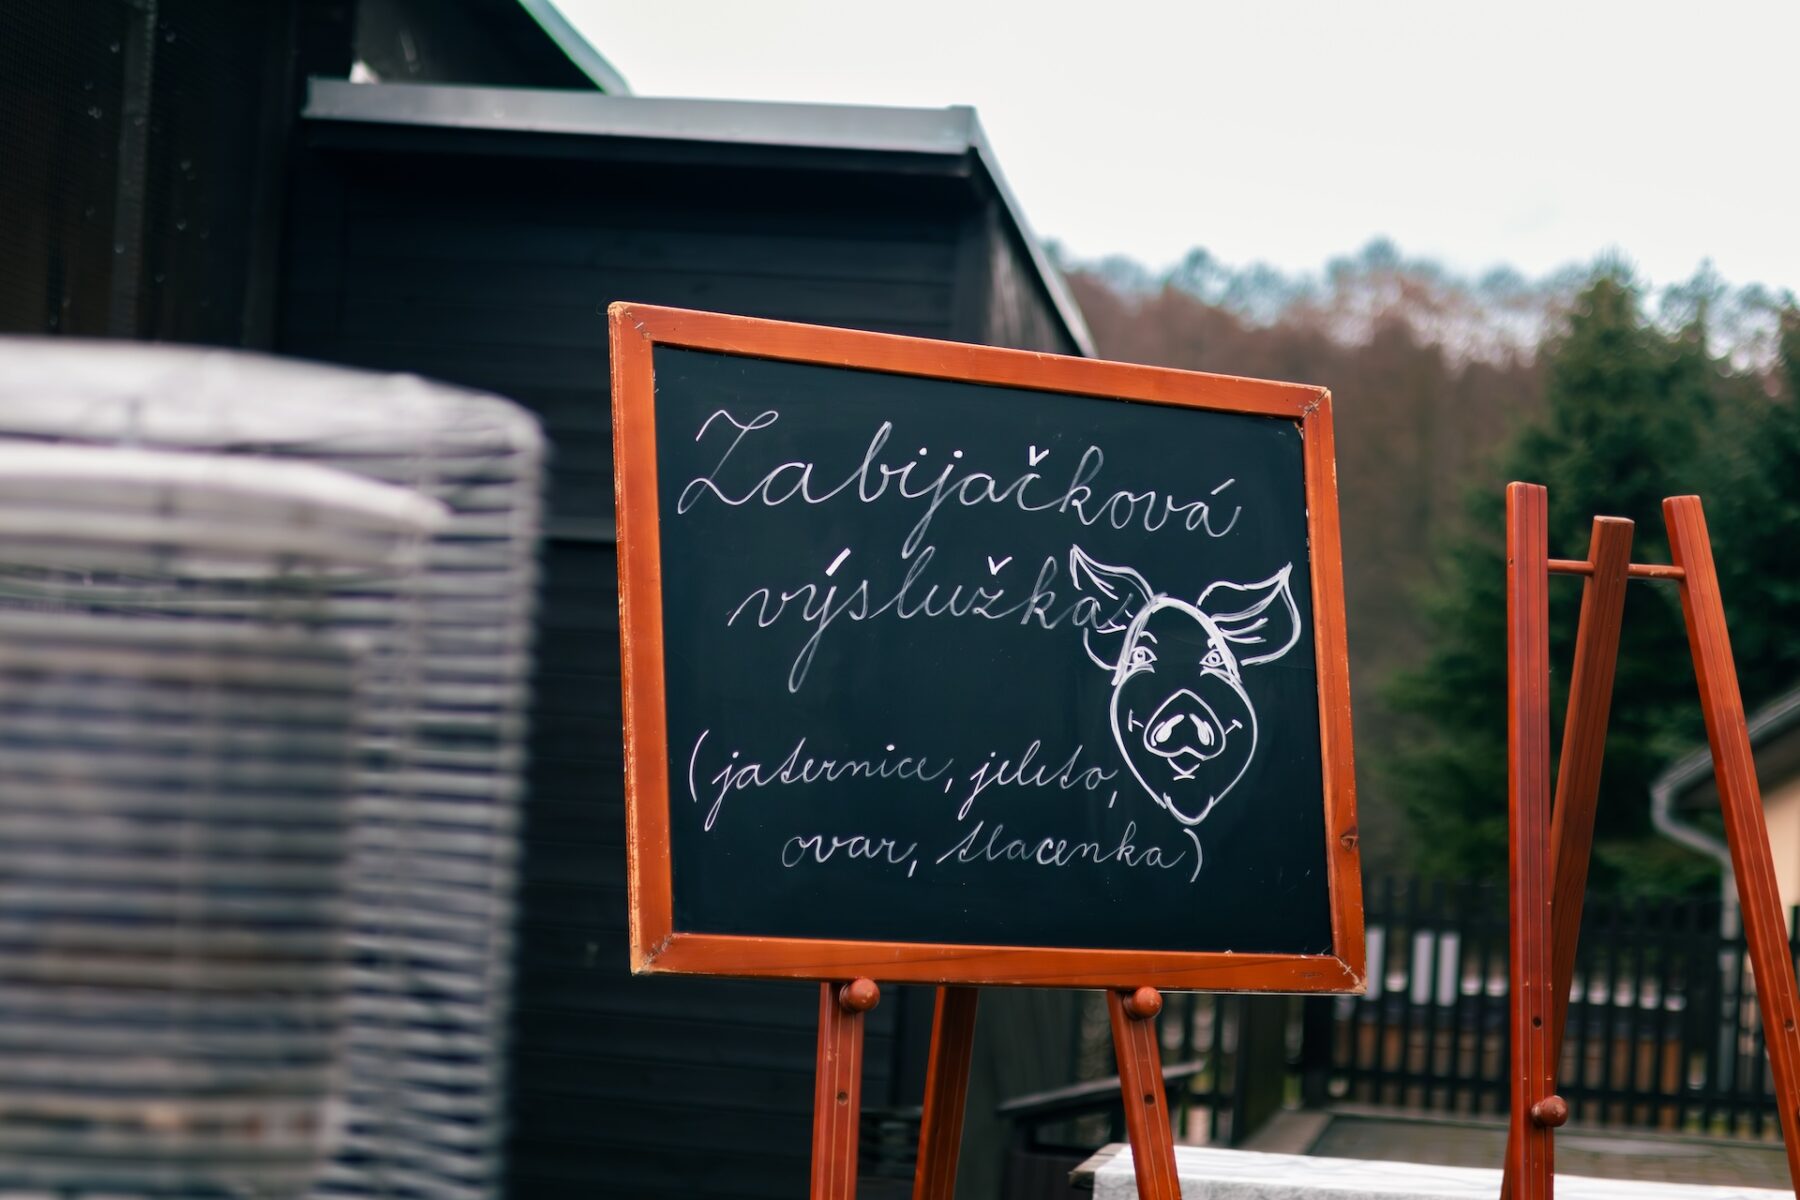 Zabijačková
výslužka
(jaternice, jeleto,
ovar, tlacenka)